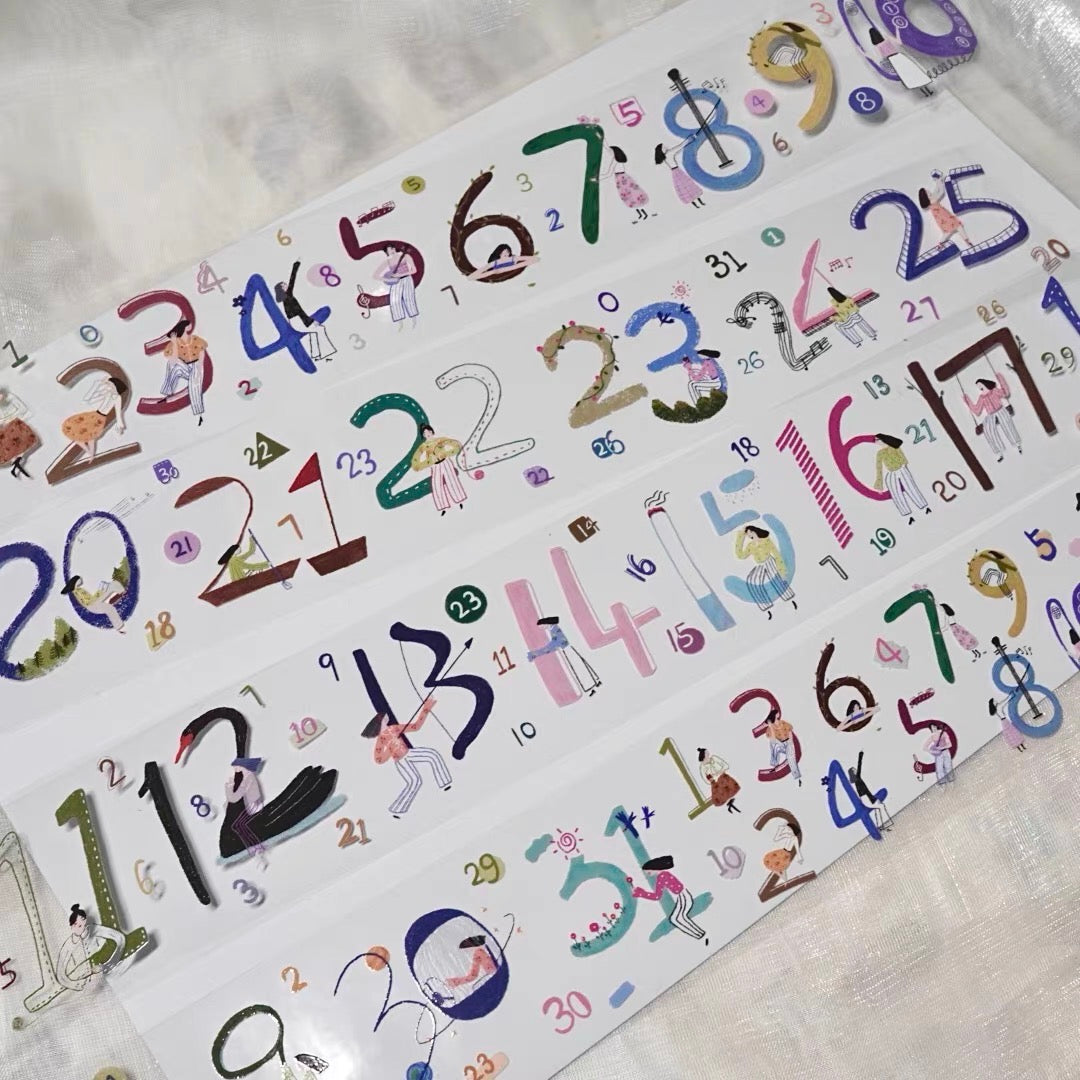 3 10
1 6 2 3 4 6 4 2 3 5 8 5 6 7 3 2 7 5 8 4 9 6 8
20 30 21 22 21 7 23 22 22 26 0 23 31 26 1 24 27 25 20
18
11 2 12 6 8 3 7 10 9 13 21 23 11 10 14 14 16 15 15 18 16 7 13 19 21 20 17 26 29 1
5
9 2 30 23 29 31 30 1 2 10 3 6 4 4 7 5 9 8 5